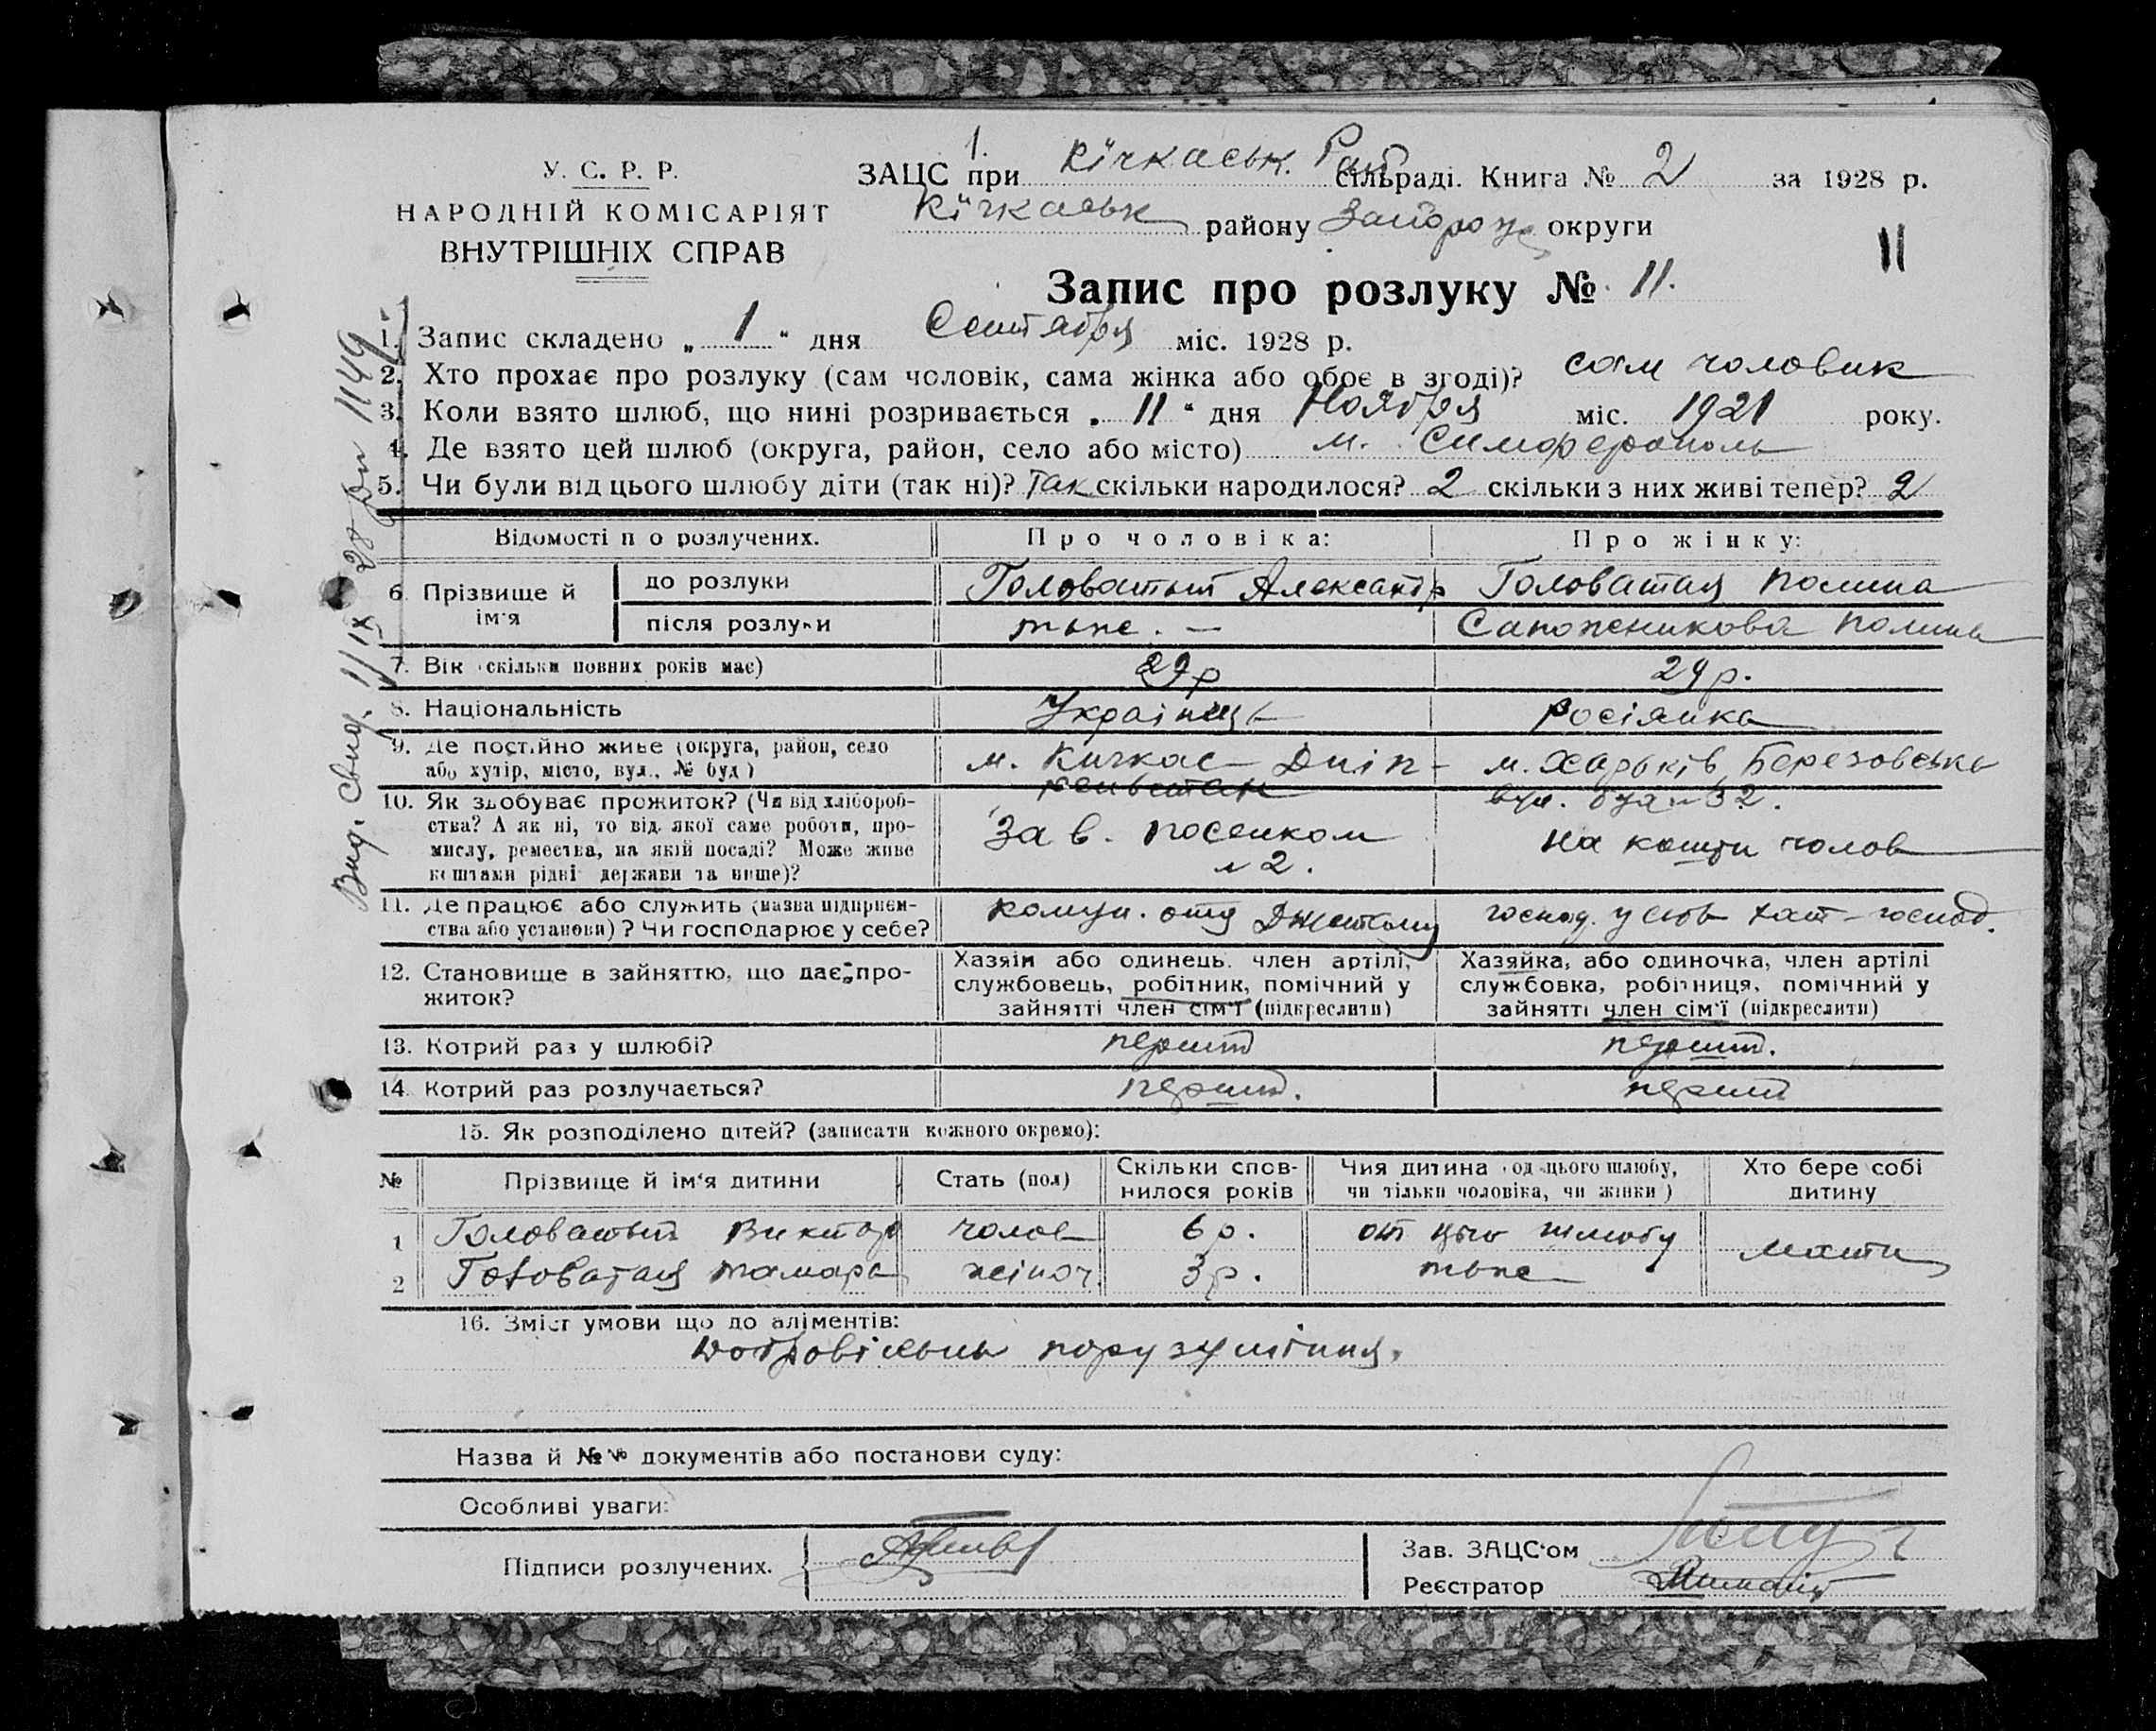 У. С. Р. Р.
НАРОДНІЙ КОМІСАРІЯТ
ВНУТРІШНІХ СПРАВ
1.
ЗАЦС при Кічкаськ. Рай сільраді. Книга № 2 за 1928 р.
Кічкаськ району Запорож округи
11
Запис про розлуку № 11.
1. Запис складено „ 1 “ дня Сентября міс. 1928 р.
2. Хто прохає про розлуку (сам чоловік, сама жінка або обоє в згоді)? сам чоловик
3. Коли взято шлюб, що нині розривається „ 11 “ дня Ноября міс. 1921 року.
4. Де взято цей шлюб (округа, район, село або місто) м. Симферополь
5. Чи були від цього шлюбу діти (так ні)? Так скільки народилося? 2 скільки з них живі тепер? 2
Відомості п о розлучених. Про чоловіка: Про жінку:
6. Прізвище й ім'я до розлуки Головатый Александр Головатая Полина
після розлуки тоже. — Сапожникова Полина
7. Вік (скільки повних років має) 29 р 29 р.
8. Національність Українець росіянка
9. Де постійно живе (округа, район, село або хутір, місто, вул., № буд) м. Кичкас м. Харьків, Березовська
вул. буд № 32.
10. Як здобуває прожиток? (Чи від хлібороб-
ства? А як ні, то від якої саме роботи, про-
мислу, ремества, на якій посаді? Може живе
коштами рідні держави та инше)?
Зав. поселком
№ 2.
на кошти чолов
11. Де працює або служить (назва підприєм-
ства або установи)? Чи господарює у себе?
комун. отд господ. у
12. Становище в зайняттю, що дає про-
житок?
Хазяін або одинець. член артілі,
службовець, робітник, помічний у
зайнятті член сім'ї (підкреслити)
Хазяйка, або одиночка, член артілі
службовка, робітниця, помічний у
зайнятті член сім'ї (підкреслити)
13. Котрий раз у шлюбі? перший перший.
14. Котрий раз розлучається? перший. перший
15. Як розподілено дітей? (записати кожного окремо):
№ Прізвище й ім'я дитини Стать (пол) Скільки спов-
нилося років Чия дитина (од цього шлюбу,
чи тільки чоловіка, чи жінки) Хто бере собі
дитину
1 Головатый Виктор чолов 6 р. от цього шлюбу мати
2 Головатая Тамара жіноч. 3 р. тоже
16. Зміст умови що до аліментів:
Добровільны порузуміння.
Назва й №№ документів або постанови суду:
Особливі уваги:
Підписи розлучених.
Зав. ЗАЦС'ом
Реєстратор
Вид. свид. 1/IX 28 р № 1149